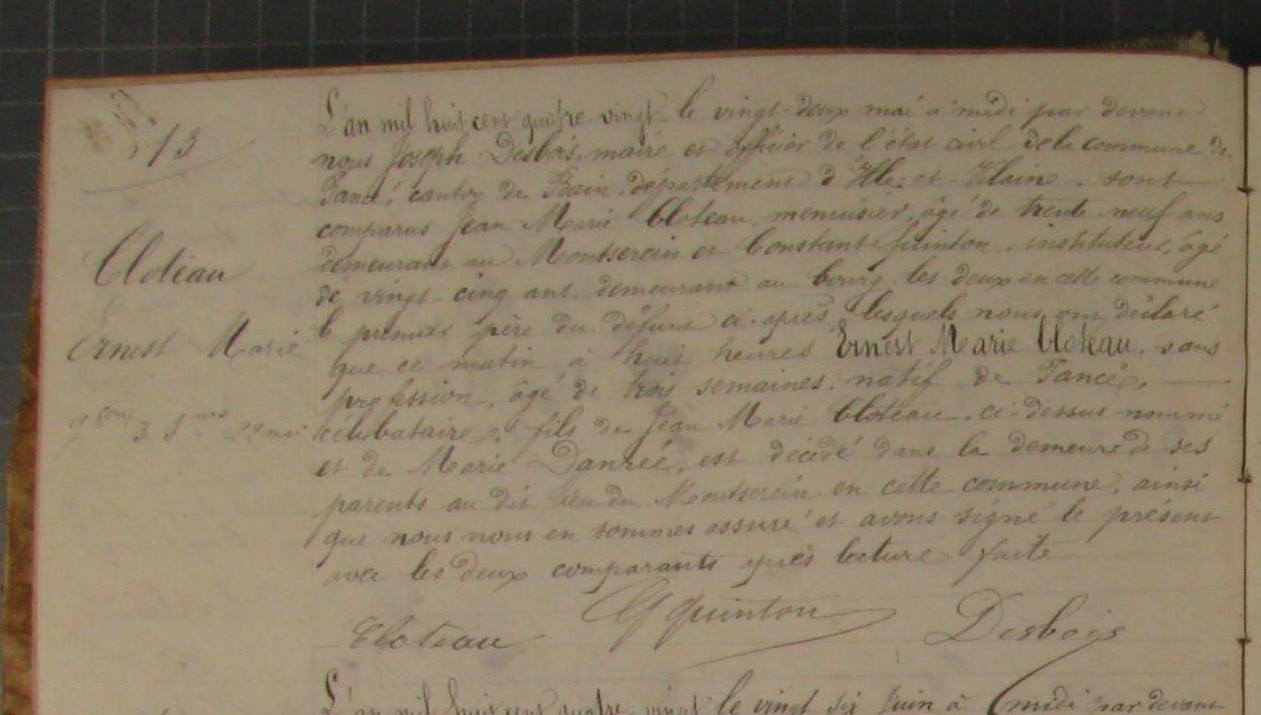 13
Cloteau
Ernest Marie
3 22 mai
L'an mil huit cent quatre-vingt le vingt-deux mai à midi par devant
nous Joseph Desbois, maire et officier de l'état civil de la commune de
Pancé, canton de Bain, département d'Ille-et-Vilaine. sont
comparus Jean Marie Cloteau, menuisier, âgé de trente-neuf ans
demeurant au Montserein et Constant Quinton, instituteur, âgé
de vingt-cinq ans, demeurant au bourg, les deux en cette commune
le premier père du défunt ci-après, lesquels nous ont déclaré
que ce matin à huit heures Ernest Marie Cloteau, sans
profession, âgé de trois semaines, natif de Pancé,
célibataire, fils de Jean Marie Cloteau, ci-dessus nommé
et de Marie Danrée, est décédé dans la demeure de ses
parents au dit lieu du Montserein en cette commune, ainsi
que nous nous en sommes assuré et avons signé le présent
avec les deux comparants après lecture faite
Cloteau Quinton Desbois
L'an mil huit cent quatre-vingt le vingt six juin à midi par devant